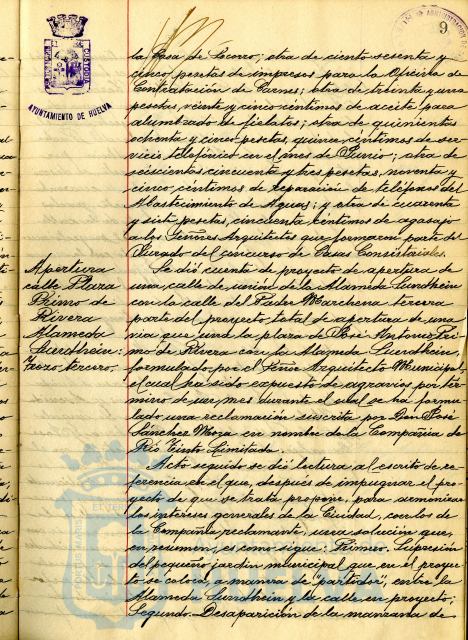 9
AYUNTAMIENTO DE HUELVA
la Casa de Socorro; otra de ciento sesenta y
cinco pesetas de impresos para la Oficina de
Contratación de Carnes; otra de treinta y una
pesetas, veinte y cinco céntimos de aceite para
alumbrado de fielatos; otra de quinientas
ochenta y cinco pesetas, quince céntimos de ser-
vicio telefónico en el mes de Junio; otra de
seiscientas cincuenta y tres pesetas, noventa y
cinco céntimos de reparación de teléfonos del
Abastecimiento de Aguas; y otra de cuarenta
y siete pesetas, cincuenta céntimos de agasajo
a los Señores Arquitectos que formaron parte del
Jurado del concurso de Casas Consistoriales.
Apertura
calle Plaza
Primo de
Rivera
Alameda
Sundhein:
trozo tercero.
Se dió cuenta de proyecto de apertura de
una calle de unión de la Alameda Sundhein
con la calle del Padre Marchena tercera
parte del proyecto total de apertura de una
vía que una la plaza de José Antonio Pri-
mo de Rivera con la Alameda Sundhein
formulado por el Señor Arquitecto Municipal,
el cual ha sido expuesto de agravios por tér-
mino de un mes durante el cual se ha formu-
lado una reclamación suscrita por Don José
Sánchez Mora en nombre de la Compañía de
Río Tinto Limitada.
Acto seguido se dió lectura al escrito de re-
ferencia en el que, después de impugnar el pro-
yecto de que se trata propone, para armonizar
los intereses generales de la Ciudad, con los de
la Compañía reclamante, una solución que,
en resumen, es como sigue: Primero. Supresión
del pequeño jardín municipal que en el proyec-
to se coloca, a manera de "partidor", entre la
Alameda Sundhein y la calle en proyecto;
Segundo. Desaparición de la manzana de